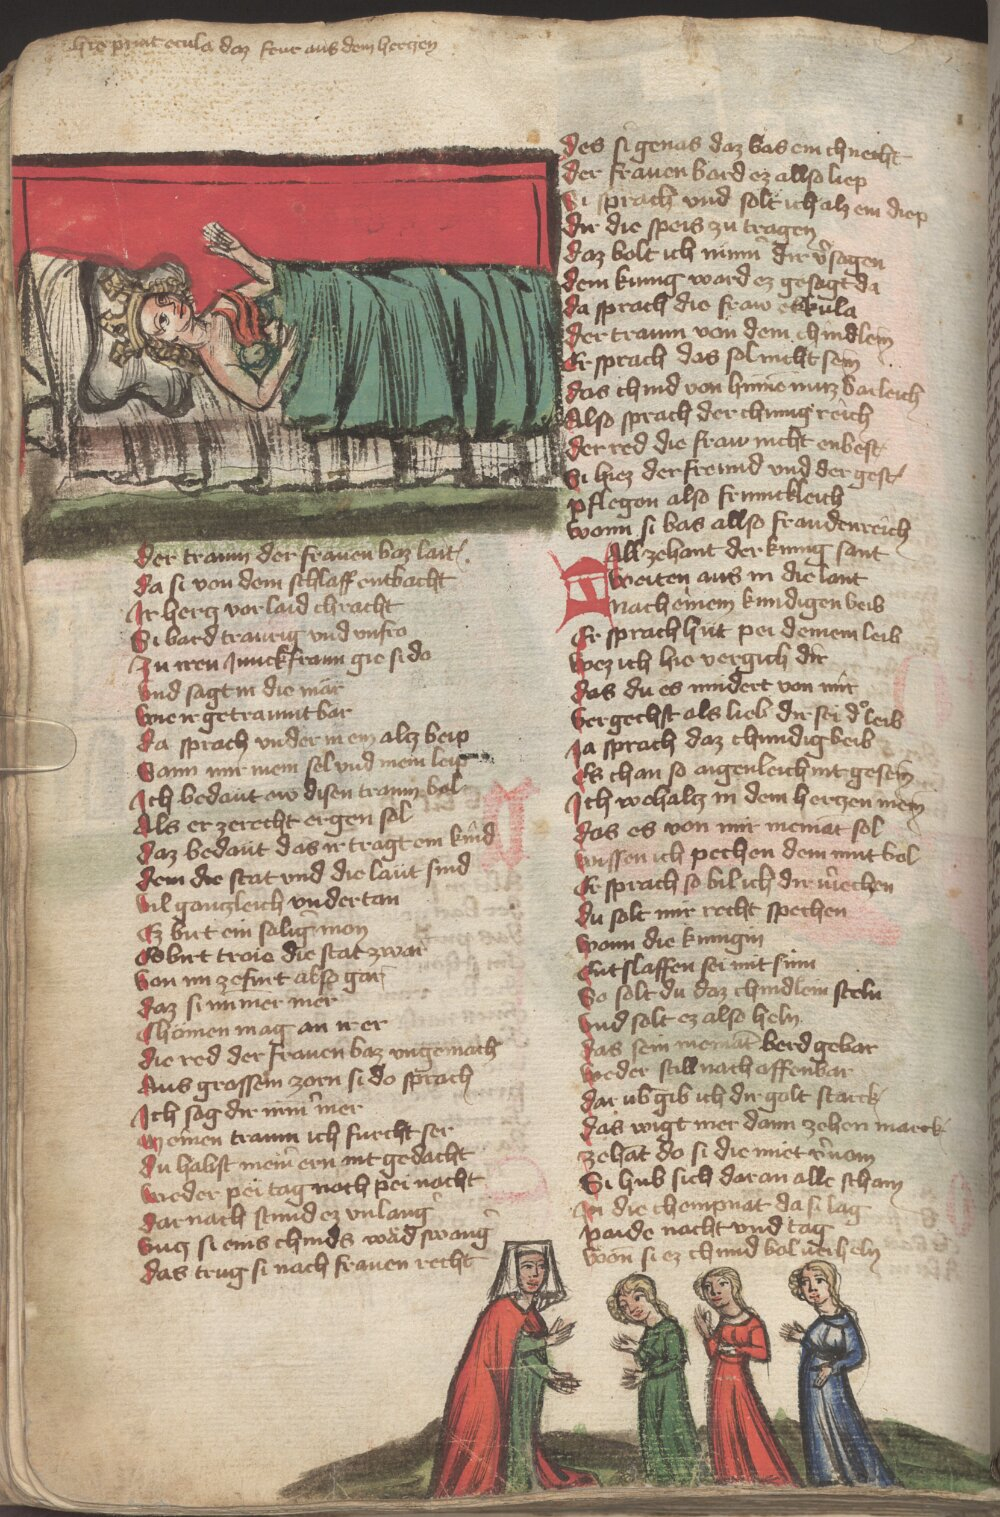 hie print ecula daz feur aus dem herczen
der traum der frauen baz lait
da si von dem schlaff entbacht
Ir hercz vor laid chracht
Si bard traurig und unfro
Zu iren Junckfraun gie si do
und sagt in die mär
wie ir getraumt bar
da sprach under in ein altz beip
Bann mir mein sel und mein leip
Ich bedaut ew disen traum bol
Als er zerecht ergen sol
daz bedaut das ir tragt ein kind
dem die stat und die laut sind
vil ganczleich undertan
Ez birt ein salig mon
Ez birt troia die stat zwar
von im zefürt also gar
daz si nimer mer
Chomen mag an ir er
die red der frauen baz ungemach
Aus grossem zorn si do sprach
Ich sag dir nim mer
meinen traum ich furcht ser
du habst meiner ern nit gedacht
weder pei tag noch pei nacht
darnach stund ez unlang
uncz si eins chinds wäd swang
das trug si nach frauen recht
des si genas daz bas ein chnecht
der frauen bard ez allso liep
Si sprach und solt ich alz ein diep
dir die speis zu tragen
daz bolt ich nimm dir v̂sagen
dem kunig ward ez gesagt da
da sprach die fraw ekkula
der traum von dem chindlein
Er sprach das sol nicht sein
das chind von hinne muz barleich
Also sprach der chunig reich
der red die fraw nicht enbest
Si hiez der freund und der gest
pflegen also frumckleich
wann si bas allso fraudenreich
Alzehant der kunig sant
weiten aus in die lant
nach einem kundigen beib
Er sprach hüt pei deinem leib
wez ich hie vergich dir
das du es mindert von mir
vergechst als lieb dir sei dᵒ leib
Ja sprach daz chundig beib
Es chan so aigenleich nit gesein
Ich wehaltz in dem herczen mein
das es von mir meniat sol
wissen ich pechen dem mut bol
Er sprach so bil ich dir v̂iechen
du solt mir recht spechen
wann die kunigin
Entslaffen sei mit sinn
So solt du daz chindlein steln
und solt ez also heln
das sein meniat berd gebar
weder still nach offenbar
dar ub gib ich dir golt starck
das wigt mer dann zehen marck
zehat do si die miet v̂nom
Si hub sich daran alle scham
In die chempnat da si lag
paide nacht und tag
won si ez chind bol verheln